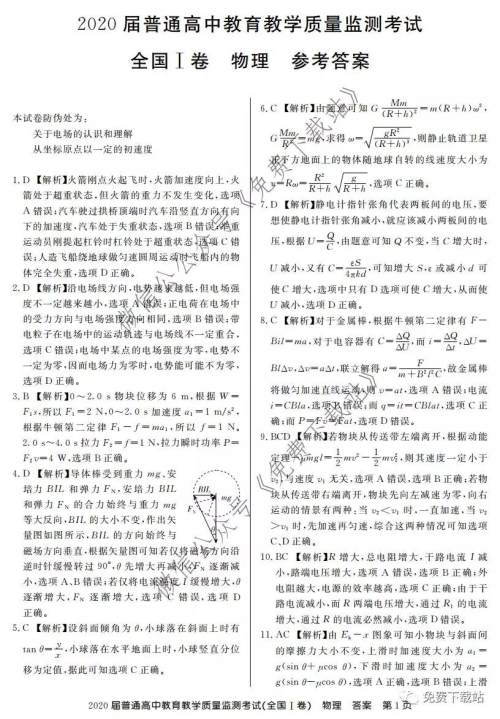 2020 届普通高中教育教学质量监测考试
全国Ⅰ卷 物理 参考答案
本试卷防伪处为：
关于电场的认识和理解
从坐标原点以一定的初速度
1. D 【解析】火箭刚点火起飞时，火箭加速度向上，火
箭处于超重状态，但火箭的重力不发生变化，选项
A 错误；汽车驶过拱桥顶端时汽车沿竖直方向有向
下的加速度，汽车处于失重状态，选项 B 错误；举重
运动员刚提起杠铃时杠铃处于超重状态，选项 C 错
误；人造飞船绕地球做匀速圆周运动时飞船内的物
体完全失重，选项 D 正确。
2. D 【解析】沿电场线方向，电势越来越低，但电场强
度不一定越来越小，选项 A 错误；正电荷在电场中
的受力方向与电场强度方向相同，选项 B 错误；带
电粒子在电场中的运动轨迹与电场线不一定重合，
选项 C 错误；电场中某点的电场强度为零，电势不
一定为零，因而电场力为零时，电势能可能不为零，
选项 D 正确。
3. B 【解析】0～2.0 s 物块位移为 6 m，根据 W=
F₁s，所以 F₁=2 N，0～2.0 s 加速度 a₁=1 m/s²，
根据牛顿第二定律 F₁-f=ma₁，所以 f=1 N，
2.0 s～4.0 s 拉力 F₂=f=1 N，拉力瞬时功率 P=
F₂v=4 W，选项 B 正确。
4. D 【解析】导体棒受到重力 mg、安
培力 BIL 和弹力 Fₙ，安培力 BIL
和弹力 Fₙ 的合力始终与重力 mg
等大反向，BIL 的大小不变，作出矢
量图如图所示，BIL 的方向始终与
磁场方向垂直，根据矢量图可知若仅将磁场方向沿
逆时针缓慢转过 90°，θ 先增大再减小，Fₙ 逐渐减
小，选项 A、B 错误；若仅将电流强度 I 缓慢增大，θ
逐渐增大，Fₙ 逐渐增大，选项 C 错误，选项 D
正确。
5. C 【解析】设斜面倾角为 θ，小球落在斜面上时有
tan θ=y/x，小球落在水平地面上时，小球竖直分位
移为定值，据此可知选项 C 正确。
BIL
mg
6. C 【解析】由题意可知 G Mm/(R+h)²=m(R+h)ω²，
G Mm/R²=mg，求得 ω=√(gR²/(R+h)³)，则静止轨道卫星
正下方地面上的物体随地球自转的线速度大小为
v=Rω=R/(R+h) · R√(g/(R+h))，选项 C 正确。
7. D 【解析】静电计指针张角代表两板间的电压，要
想使静电计指针张角减小，就应该减小两板间的电
压，根据 U=Q/C，由题意可知 Q 不变，当 C 增大时，
U 减小，又有 C=εS/4πkd，可知增大 S、ε 或减小 d 可
使 C 增大，选项中只有 D 选项可使 C 增大，从而使
U 减小，选项 D 正确。
8. C 【解析】对于金属棒，根据牛顿第二定律有 F-
BiL=ma，对于电容器有 C=ΔQ/ΔU，而 i=ΔQ/Δt，ΔU=
BLΔv，Δv=aΔt，联立解得 a=F/(m+B²L²C)，故金属棒
将做匀加速直线运动，则 v=at，选项 A 错误；电流
i=CBLa，选项 B 错误；而 q=it=CBLat，选项 C 正
确；而 P=Fv=Fat，选项 D 错误。
9. BCD 【解析】若物块从传送带左端离开，根据动能
定理-μmgl=½mv²-½mv₂²，则其速度一定小于
v₂，与速度 v₁ 无关，选项 A 错误，选项 B 正确；若物
块从传送带右端离开，物块先向左减速为零，向右
运动的情景有两种：当 v₂<v₁ 时，一直加速，当 v₂
>v₁ 时，先加速再匀速，综合这两种情况可知选项
C、D 正确。
10. BC 【解析】R 增大，总电阻增大，干路电流 I 减
小，路端电压增大，选项 A 错误，选项 B 正确；外
电阻越大，电源的效率越高，选项 C 正确；由于干
路电流减小，而 R 两端电压增大，通过 R₁ 的电流
增大，通过 R 的电流必然减小，选项 D 错误。
11. AC 【解析】由 Eₖ-x 图象可知小物块与斜面间
的摩擦力大小不变，上滑时加速度大小为 a₁=
g(sin θ+μcos θ)，下滑时加速度大小为 a₂=
g(sin θ-μcos θ)，选项 A 正确，选项 B 错误；上滑
2020 届普通高中教育教学质量监测考试(全国Ⅰ卷) 物理 答案 第 1 页
微信公众号《免费下载站》
微信公众号《免费下载站》
免费下载站